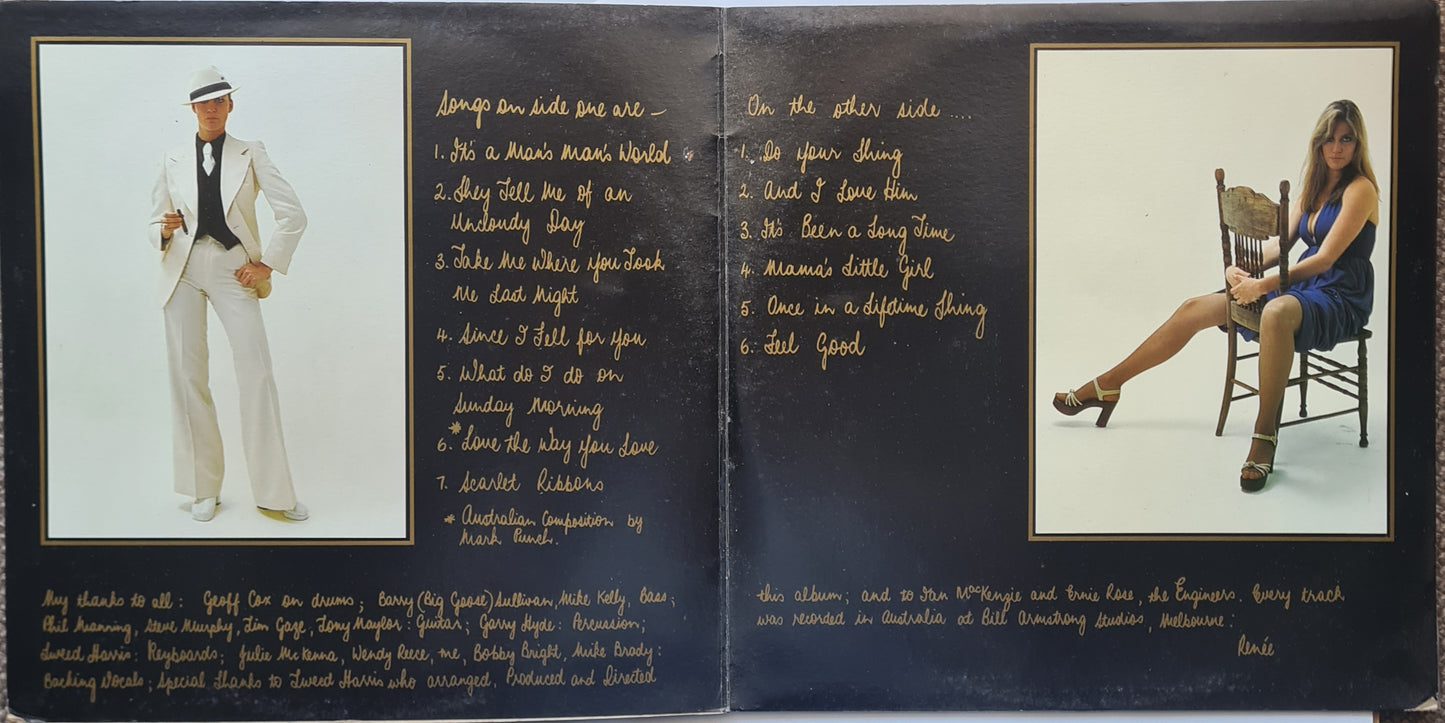 Songs on side one are –
1. It's a Man's Man's World
2. They Tell Me of an
Uncloudy Day
3. Take Me Where you Took
Me Last Night
4. Since I Fell for you
5. What do I do on
Sunday Morning
*
6. Love the Way you Love
7. Scarlet Ribbons
* Australian Composition by
Mark Punch.
On the other side ....
1. Do your Thing
2. And I Love Him
3. It's Been a Long Time
4. Mama's Little Girl
5. Once in a Lifetime Thing
6. Feel Good
My thanks to all: Geoff Cox on drums; Barry (Big Goose) Sullivan, Mike Kelly, Bass;
Phil Manning, Steve Murphy, Tim Gaze, Tony Naylor: Guitar; Garry Hyde: Percussion;
Tweed Harris: Keyboards; Julie McKenna, Wendy Reece, me, Bobby Bright, Mike Brady:
Backing Vocals; Special Thanks to Tweed Harris who arranged, Produced and Directed
this album; and to Ian MacKenzie and Ernie Rose, the Engineers. Every track
was recorded in Australia at Bill Armstrong Studios, Melbourne.
Renée